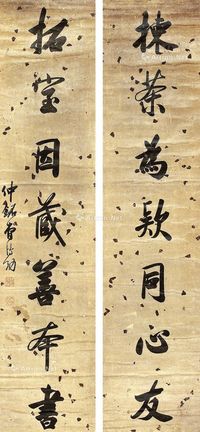 揀茶為款同心友
拓室因藏善本書
仲銘曾紀功